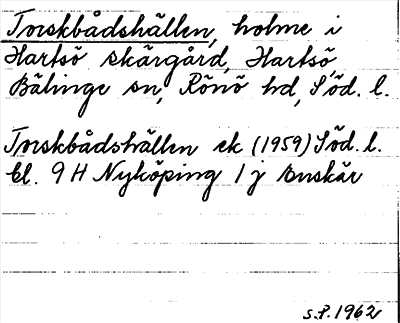 Torskbådshällen, holme i
Hartsö skärgård, Hartsö,
Bälinge sn, Rönö hd, Söd. l.
Torskbådshällen ek (1959) Söd. l.
bl. 9 H Nyköping 1 j Buskär
S.P. 1962